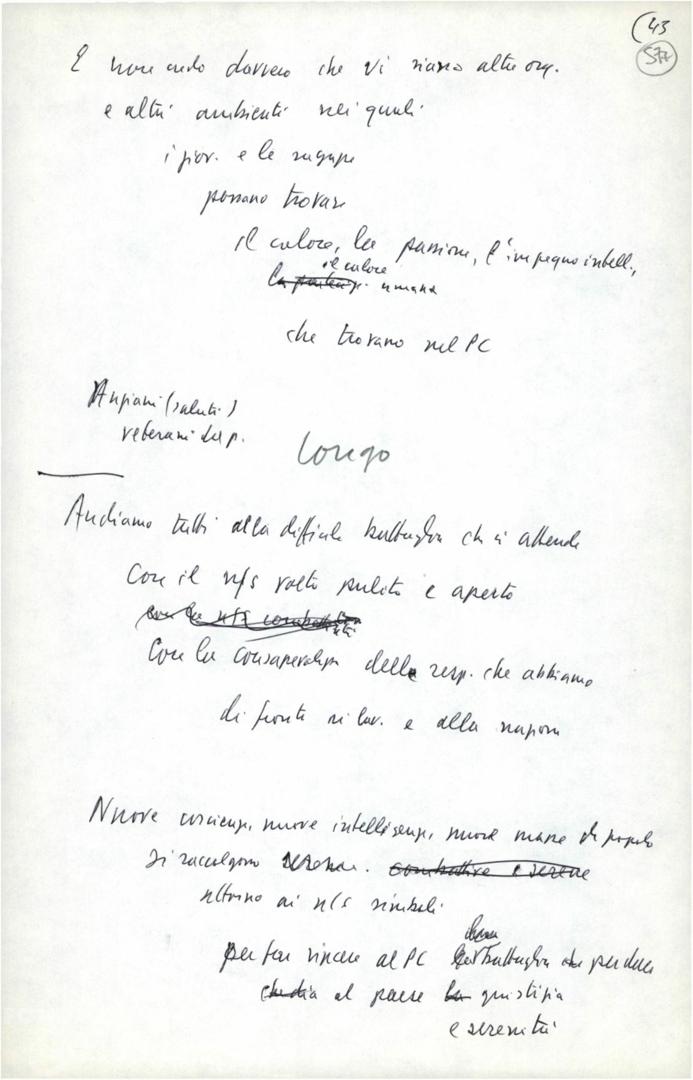 (43
577
E non credo davvero che vi siano altre org.
e altri ambienti nei quali
i giov. e le ragazze
possano trovare
il calore, la passione, l'impegno intell.,
il calore
umana
che trovano nel PC
Anziani (saluti)
veterani del p.
Longo
Andiamo tutti alla difficile battaglia che ci attende
Con il n/s volto pulito e aperto
con la n/s
Con la consapevolezza della resp. che abbiamo
di fronte ai lav. e alla nazione
Nuove coscienze, nuove intelligenze, nuove masse di popolo
si raccolgono serene. combattive e serene
attorno ai n/s simboli
per far vincere al PC battaglia per dare
che dia al paese la giustizia
e serenità